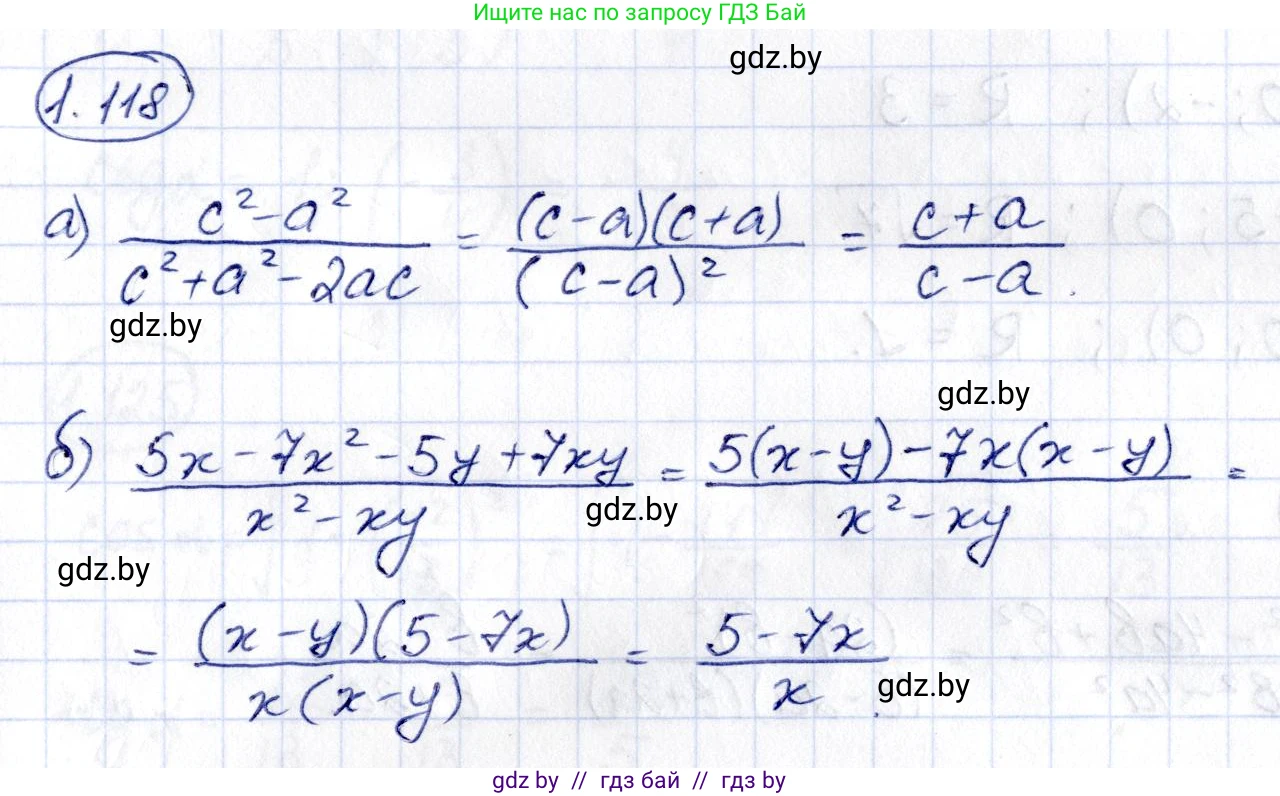 Ищите нас по запросу ГДЗ Бай
gdz.by
1.118
а) (c² - a²)/(c² + a² - 2ac) = ((c - a)(c + a))/((c - a)²) = (c + a)/(c - a).
gdz.by
gdz.by
б) (5x - 7x² - 5y + 7xy)/(x² - xy) = (5(x - y) - 7x(x - y))/(x² - xy) =
gdz.by
gdz.by
= ((x - y)(5 - 7x))/(x(x - y)) = (5 - 7x)/x.
gdz.by
gdz by // гдз бай // гдз by